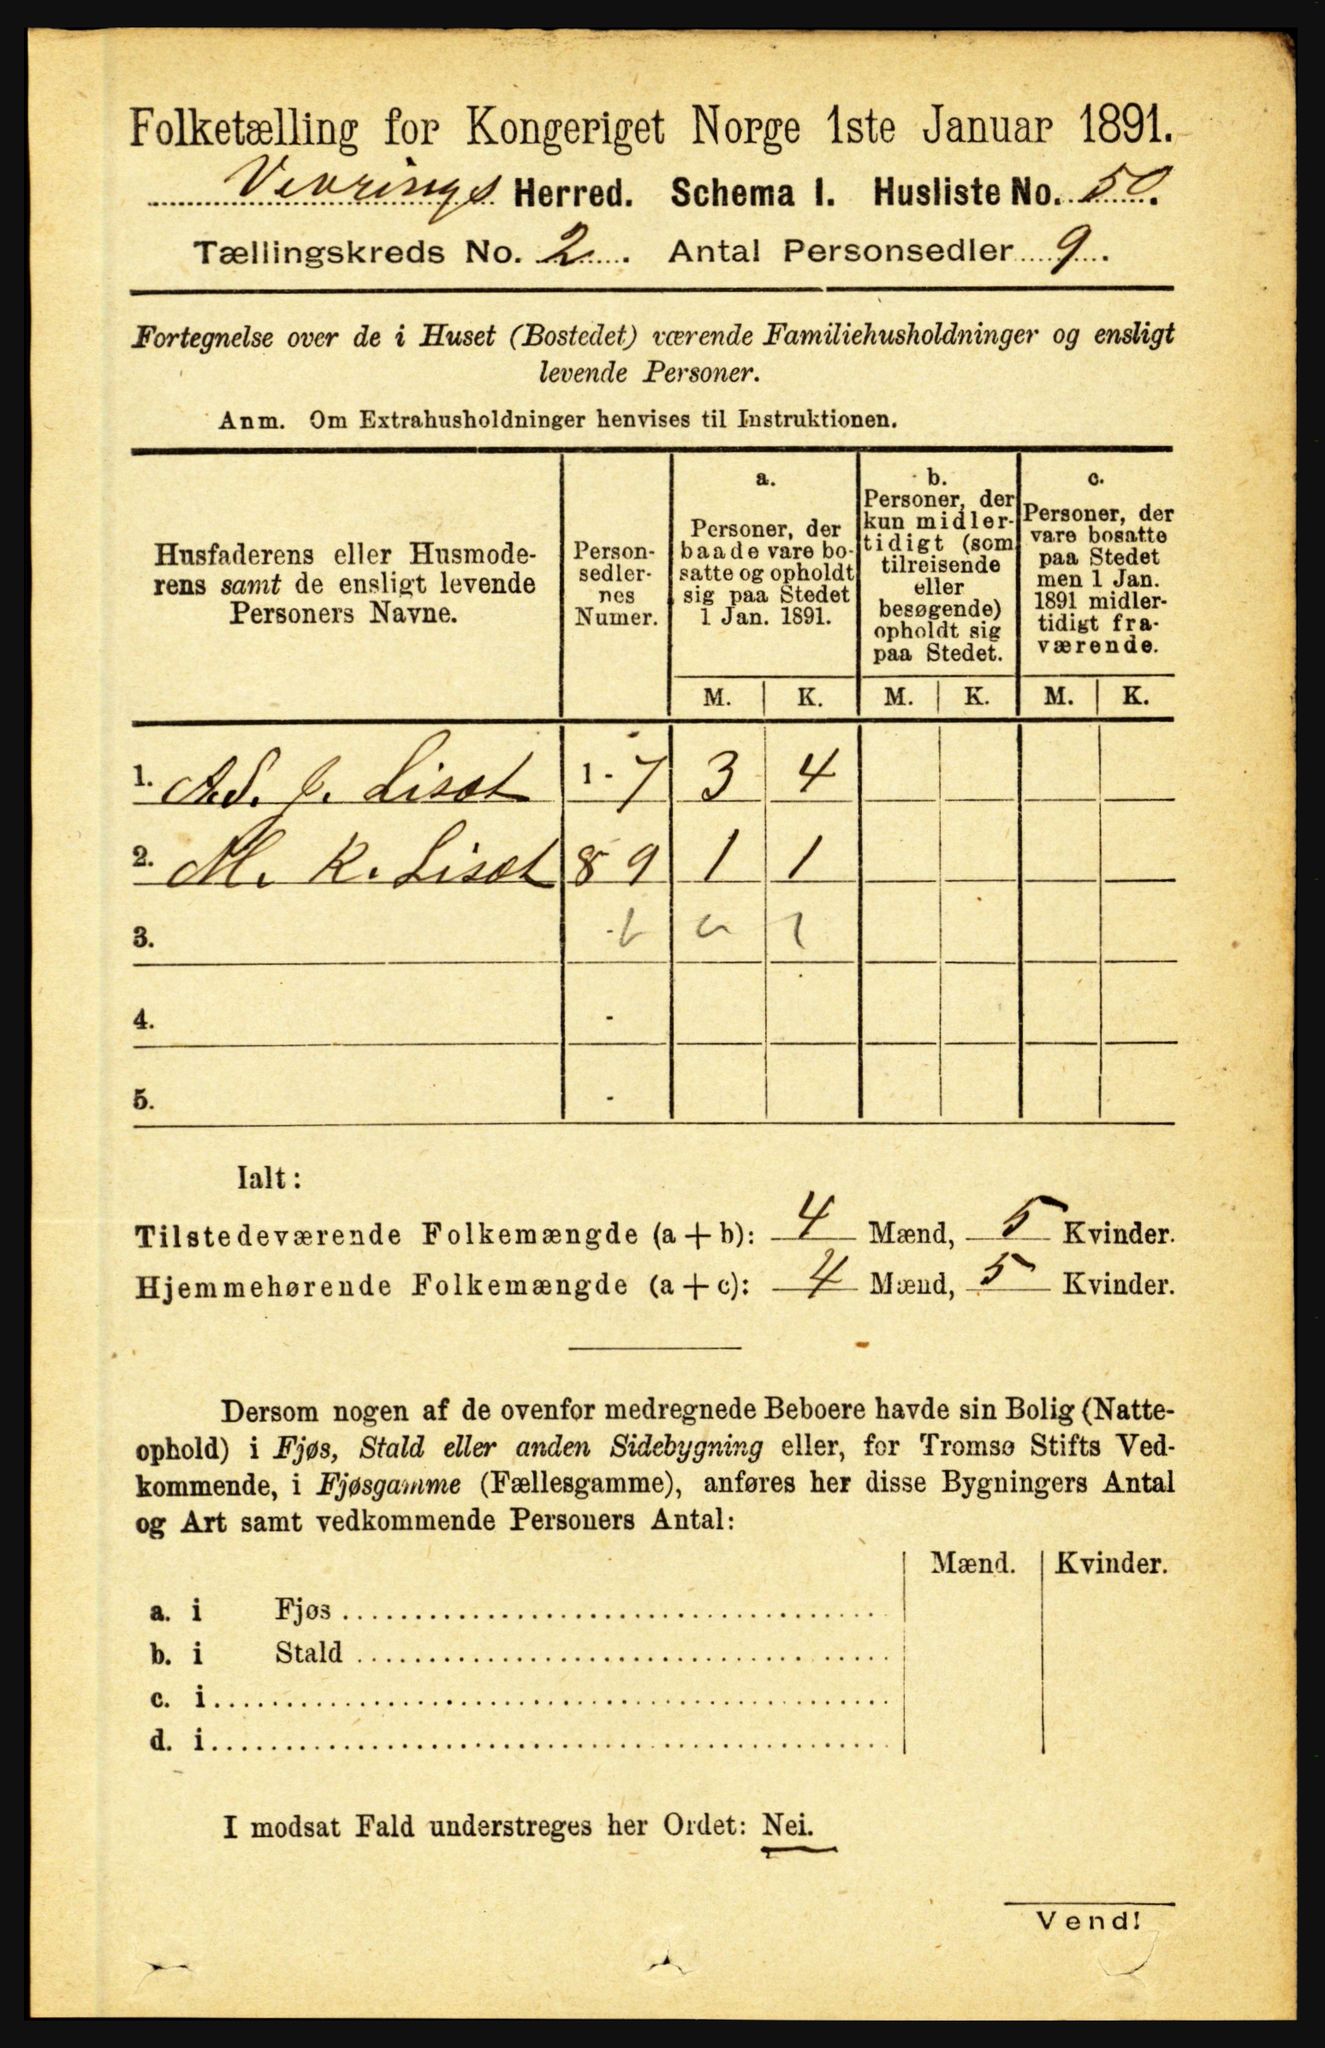 Folketælling for Kongeriget Norge 1ste Januar 1891.
Vevrings Herred. Schema I. Husliste No. 50.
Tællingskreds No. 2. Antal Personsedler 9.
Fortegnelse over de i Huset (Bostedet) værende Familiehusholdninger og ensligt
levende Personer.
Anm. Om Extrahusholdninger henvises til Instruktionen.
Husfaderens eller Husmode-
rens samt de ensligt levende
Personers Navne.
Person-
sedler-
nes
Numer.
a.
Personer, der
baade vare bo-
satte og opholdt
sig paa Stedet
1 Jan. 1891.
b.
Personer, der
kun midler-
tidigt (som
tilreisende
eller
besøgende)
opholdt sig
paa Stedet.
c.
Personer, der
vare bosatte
paa Stedet
men 1 Jan.
1891 midler-
tidigt fra-
værende.
M. K. M. K. M. K.
1. J. Liset 1 - 7 3 4
2. M. K. Liset 8 9 1 1
3.
4. -
5. -
Ialt:
Tilstedeværende Folkemængde (a + b): 4 Mænd, 5 Kvinder.
Hjemmehørende Folkemængde (a + c): 4 Mænd, 5 Kvinder.
Dersom nogen af de ovenfor medregnede Beboere havde sin Bolig (Natte-
ophold) i Fjøs, Stald eller anden Sidebygning eller, for Tromsø Stifts Ved-
kommende, i Fjøsgamme (Fællesgamme), anføres her disse Bygningers Antal
og Art samt vedkommende Personers Antal:
Mænd. Kvinder.
a. i Fjøs
b. i Stald
c. i
d. i
I modsat Fald understreges her Ordet: Nei.
Vend!